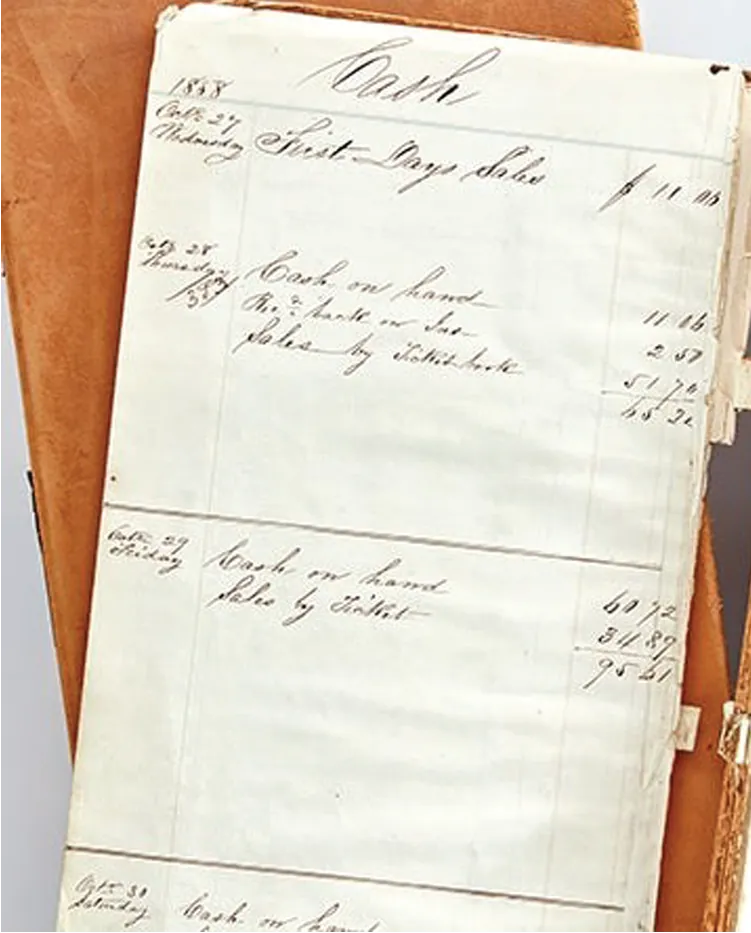 Cash
1858
Oct. 27
Wednesday First Days Sales $ 11 06
Oct. 28
Thursday
Cash on hand 11 06
back on 2 50
Sales by Ticket book 51 70
65 26
Oct. 29
Friday
Cash on hand 60 72
Sales by Ticket 34 89
95 61
Oct. 30
Saturday
Cash on hand